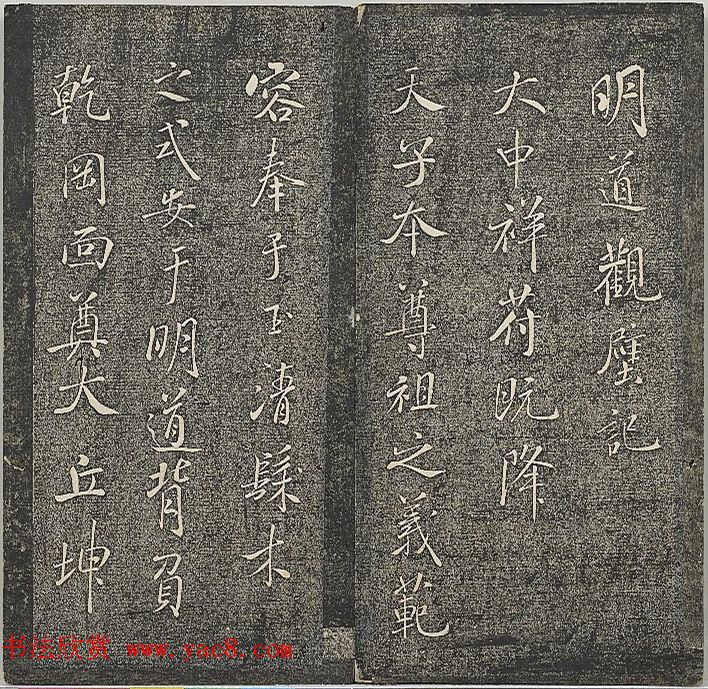 明道觀壁記
大中祥苻既降
天子本尊祖之義範
容奉于玉清髹木
之式安于明道背負
乾岡面奠大丘坤
书法欣赏 www.yac8.com